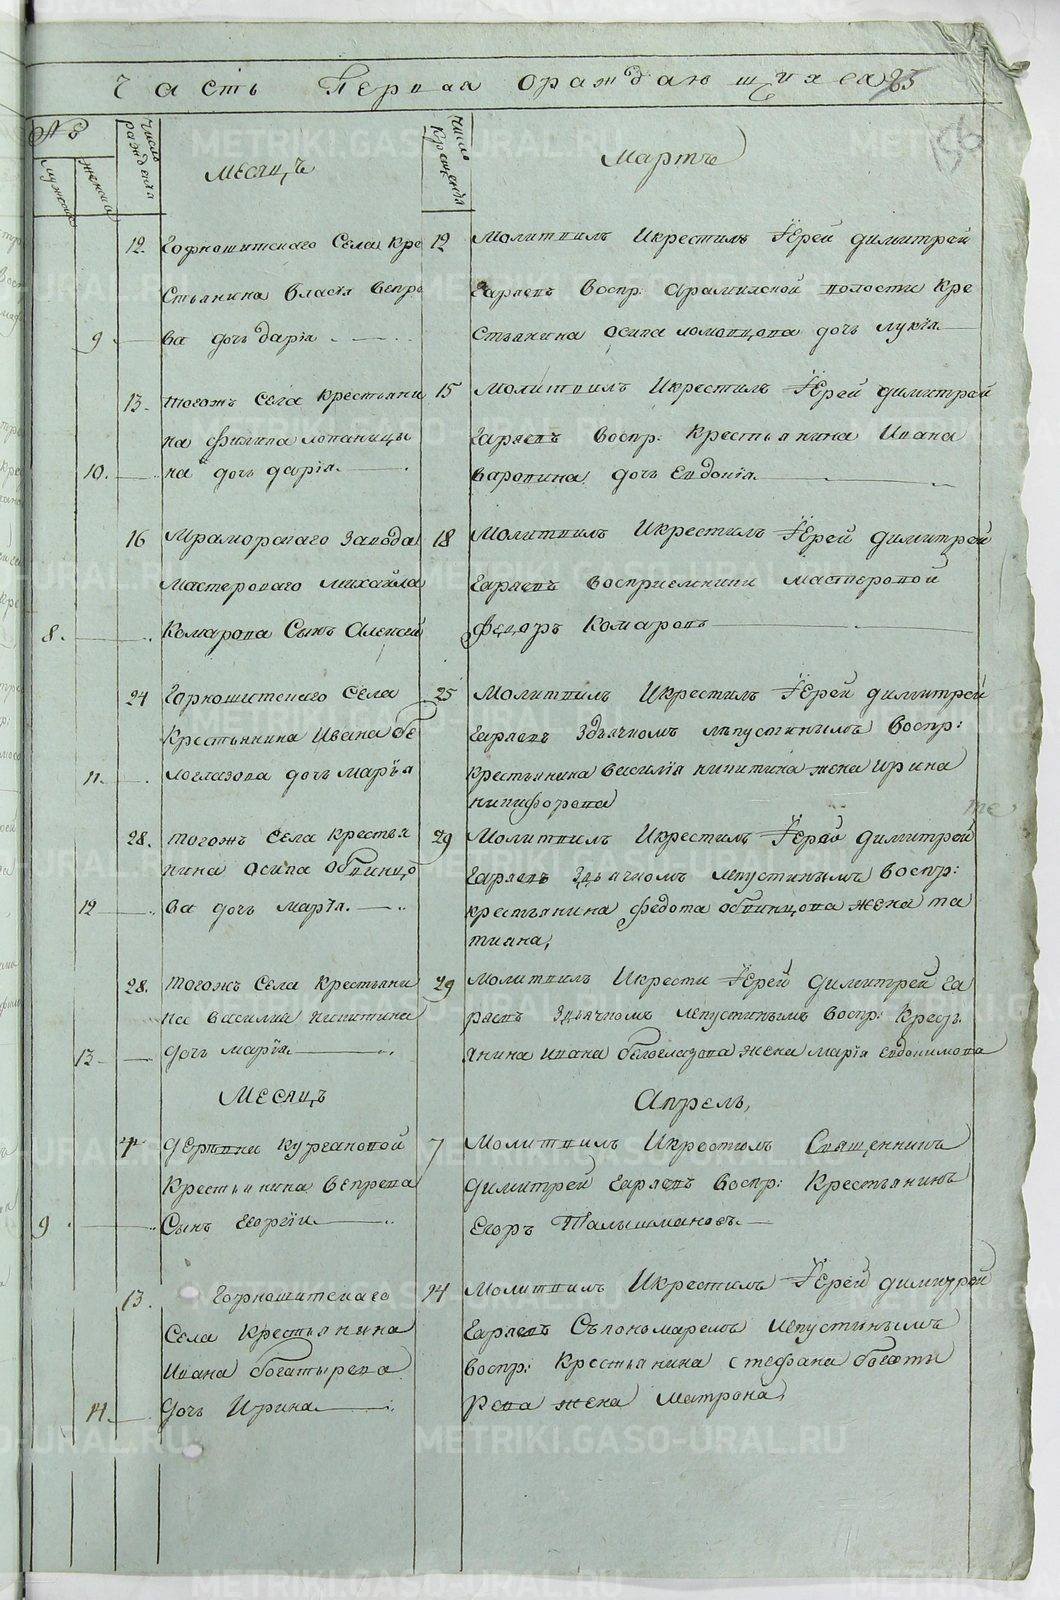 Часть Первая ораждающихся 83
156
№
мужска
женска
Число ражденiя
Месяцъ
Число Крещенiя
Мартъ
12. Горношитскаго Села Кре
Стьянина Власiя Вепре
9. ва дочь дарiя
12 Молитвилъ Икрестилъ Iерей димитрей
Гаряевъ Воспр: арамилской волости Кре
стьянина Осипа ломовцова дочь лукiя
13. тогожъ Села Крестьяни
на Филипа лопаницы
10. на дочь дарiя
15 Молитвилъ Икрестилъ Iерей димитрей
Гаряевъ Воспр: Крестьянина Ивана
Варовина дочь Евдокiя
16 Мраморскаго Завода
Мастероваго михайла
8. Комарова Сынъ Алексей
18 Молитвилъ Икрестилъ Iерей димитрей
Гаряевъ Восприемники мастеровой
Федоръ Комаровъ
24 Горношитскаго Села
Крестьянина Ивана бе
11. логлазова дочь марiя
25 Молитвилъ Икрестилъ Iерей димитрей
Гаряевъ Здьячкомъ Воспр:
крестьянина Василiя никитина жена ирина
никифорова
28. тогожъ Села крестья
нина Осипа Обвинцо
12 ва дочь марiя
29 Молитвилъ Икрестилъ Iерей димитрей
Гаряевъ Здьячкомъ лепустинымъ Воспр:
крестьянина федота обвинцова жена та
тиана,
28. тогожъ Села крестьяни
на василия никитина
13 дочь марiя
29 Молитвилъ Икрести Iерей димитрей Га
ряевъ Здьячкомъ лепустинымъ Воспр: Крест
янина ивана белоглазова жена марiя евдокимова
Месяцъ
Апрель,
4 деревни кургановой
Крестьянина Вепрева
9 Сынъ Георгiи
7 Молитвилъ Икрестилъ Священникъ
димитрей Гаряевъ Воспр: Крестьянинъ
Егоръ Талышмановъ
13. Горношитскаго
Села Крестьянина
Ивана богатырева
14. дочь Ирина
14 Молитвилъ Икрестилъ Iерей димитрей
Гаряевъ Съпономаремъ лепустинымъ
Воспр: Крестьянина стефана богаты
рева жена матрона,
METRIKI.GASO-URAL.RU